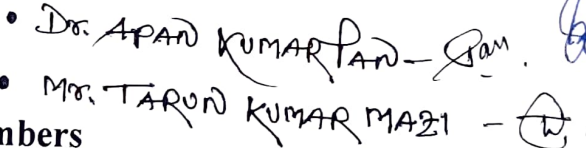 • Dr. APAN KUMAR PAN - Pan.
• Mr. TARUN KUMAR MAZI -
mbers